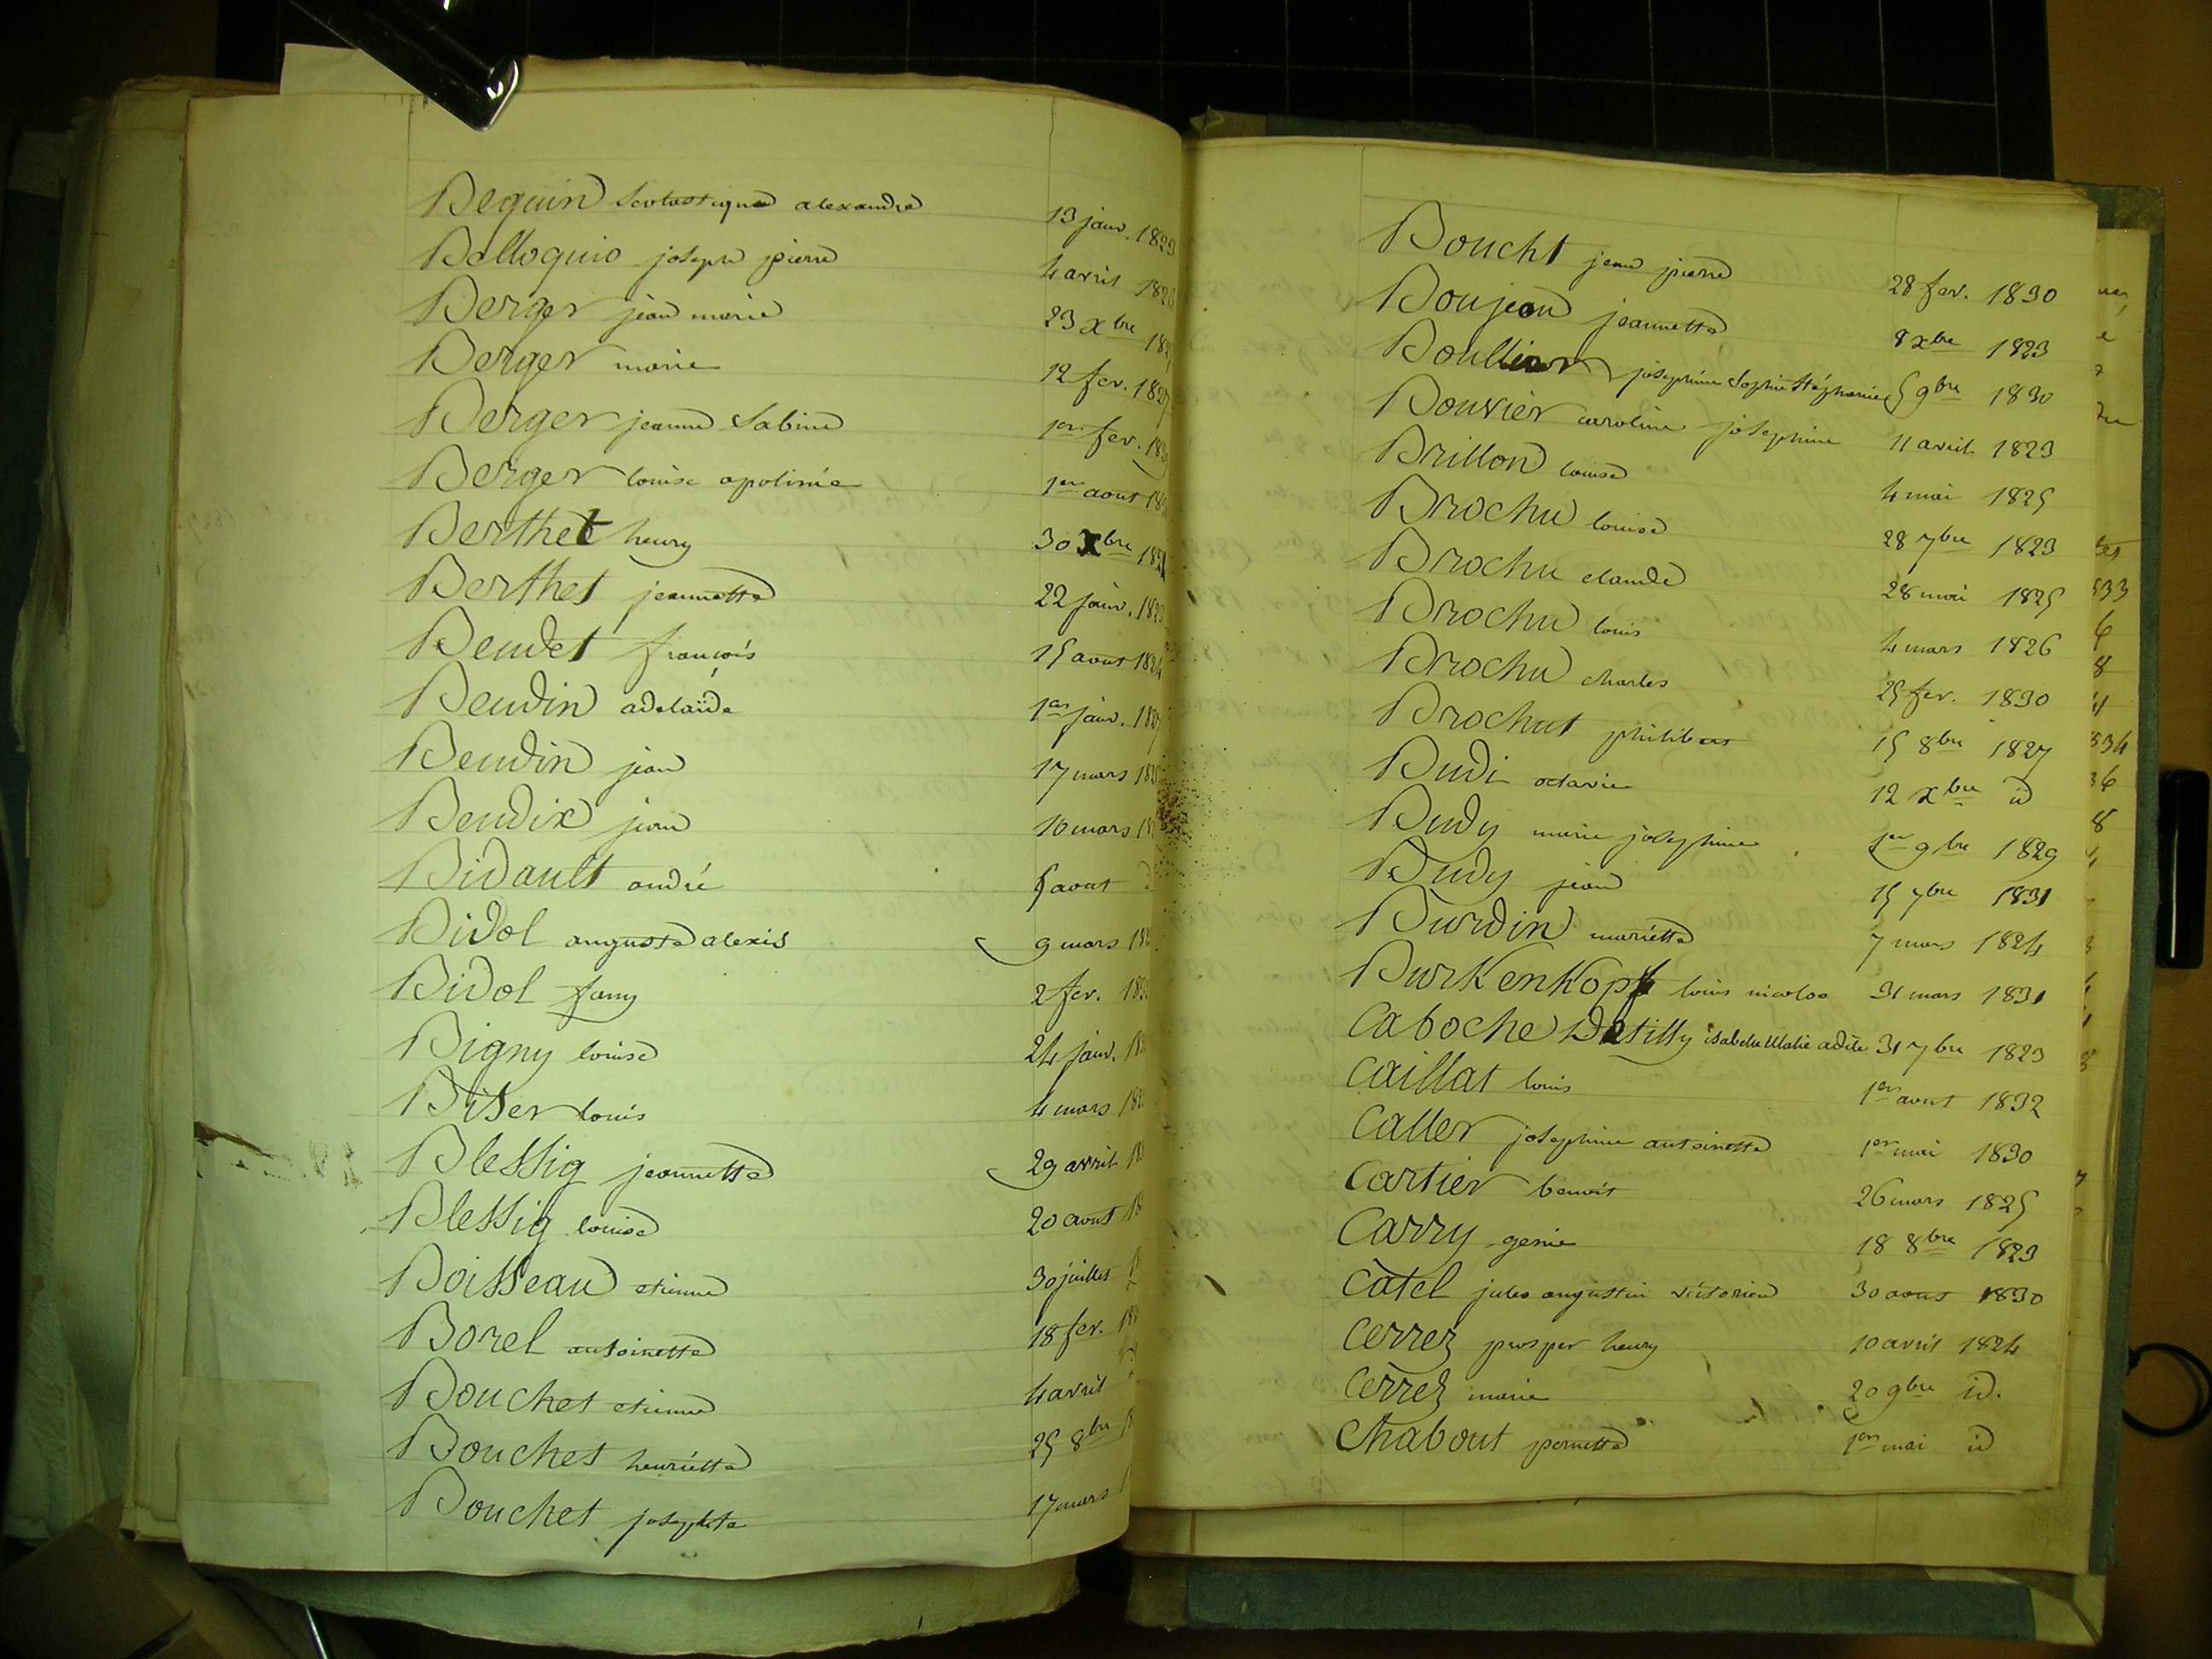 Bequin Scolastique alexandre 13 janv. 1823
Belloquio joseph pierre 4 avril 182
Berger jean marie 23 xbre 18
Berger marie 12 fev. 1827
Berger jeanne Sabine 1er fev. 18
Berger louise apolinie 1er aout 18
Berthet henry 30 xbre 1821
Berthet jeannette 22 janv. 1823
Beudet françois 15 aout 1824
Beudin adelaïde 1er janv. 18
Beudin jean 17 mars 18
Beudix jean 16 mars 1
Bidault andré 5 aout
Bidol auguste alexis 9 mars 18
Bidol fany 2 fev. 18
Bigny louise 24 janv. 18
Biser louis 4 mars 182
Blessig jeannette 29 avril 18
Blessig louise 20 aout 18
Boisseau etienne 30 juillet
Borel antoinette 18 fev. 18
Bouchet etienne 4 avril
Bouchet henriette 25 8bre
Bouchet josephte 17 mars
Boucht jean pierre 28 fev. 1830
Boujean jeannette 8 xbre 1823
Boullier josephine Sophie Stéphanie 5 9bre 1830
Bouvier caroline josephine 11 avril 1823
Brillon louise 4 mai 1825
Brochu louise 28 7bre 1823
Brochu claude 28 mai 1825
Brochu louis 4 mars 1826
Brochu charles 25 fev. 1830
Brochut philibert 15 8bre 1827
Budi octavie 12 xbre id
Budy marie josephine 1er 9bre 1829
Budy jean 15 7bre 1831
Burdin mariette 7 mars 1824
BurKenKopf louis nicolas 31 mars 1831
Caboche Detilly isabelle Malie adèle 31 7bre 1823
Caillat louis 1er aout 1832
Caller josephine antoinette 1er mai 1830
Cartier benoit 26 mars 1825
Carry genie 18 8bre 1823
Catel jules augustin victorien 30 aout 1830
Cerrez prosper henry 10 avril 1824
Cerrez marie 20 9bre id.
Chabout pernette 1er mai id